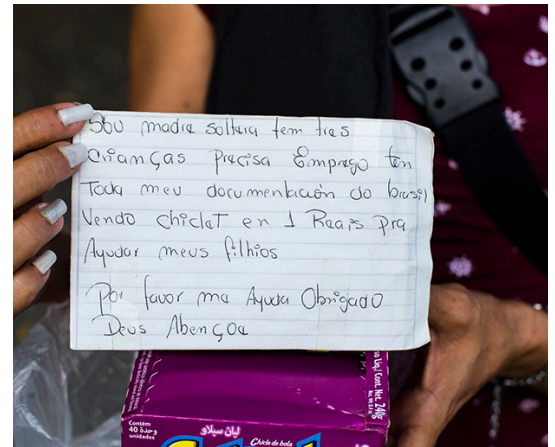 Sou madre soltura tem tres
crianças precisa Emprego ten
Toda meu documentación do brasil
Vendo chiclat en 1 Reais pra
Ayudar meus filhios
Por favor me Ayuda Obrigado
Deus Abençoa
Contém
40 وحدة
unidades
لبان سيلاو
Chicle de bola